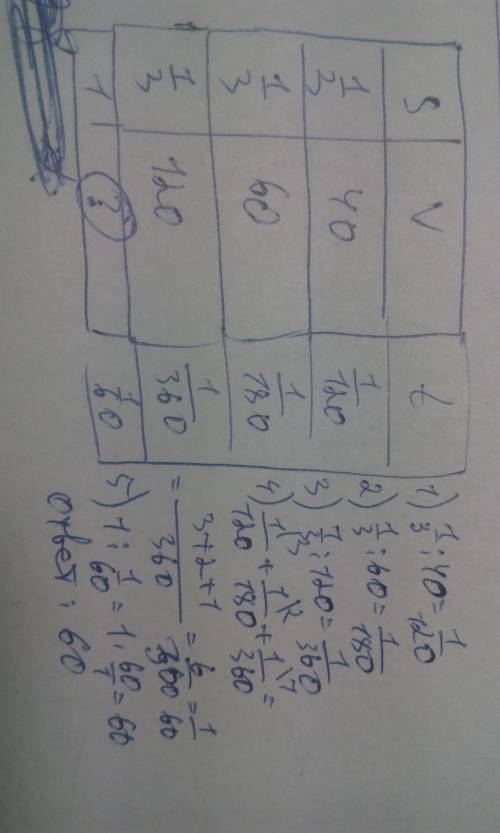 S V t
1/3 40 1/120
1/3 60 1/180
1/3 120 1/360
1 ? 1/60
1) 1/3 : 40 = 1/120
2) 1/3 : 60 = 1/180
3) 1/3 : 120 = 1/360
4) 1\3/120 + 1\2/180 + 1\1/360 =
= 3+2+1/360 = 6/360 = 1/60
5) 1 : 1/60 = 1 · 60/1 = 60
Ответ: 60